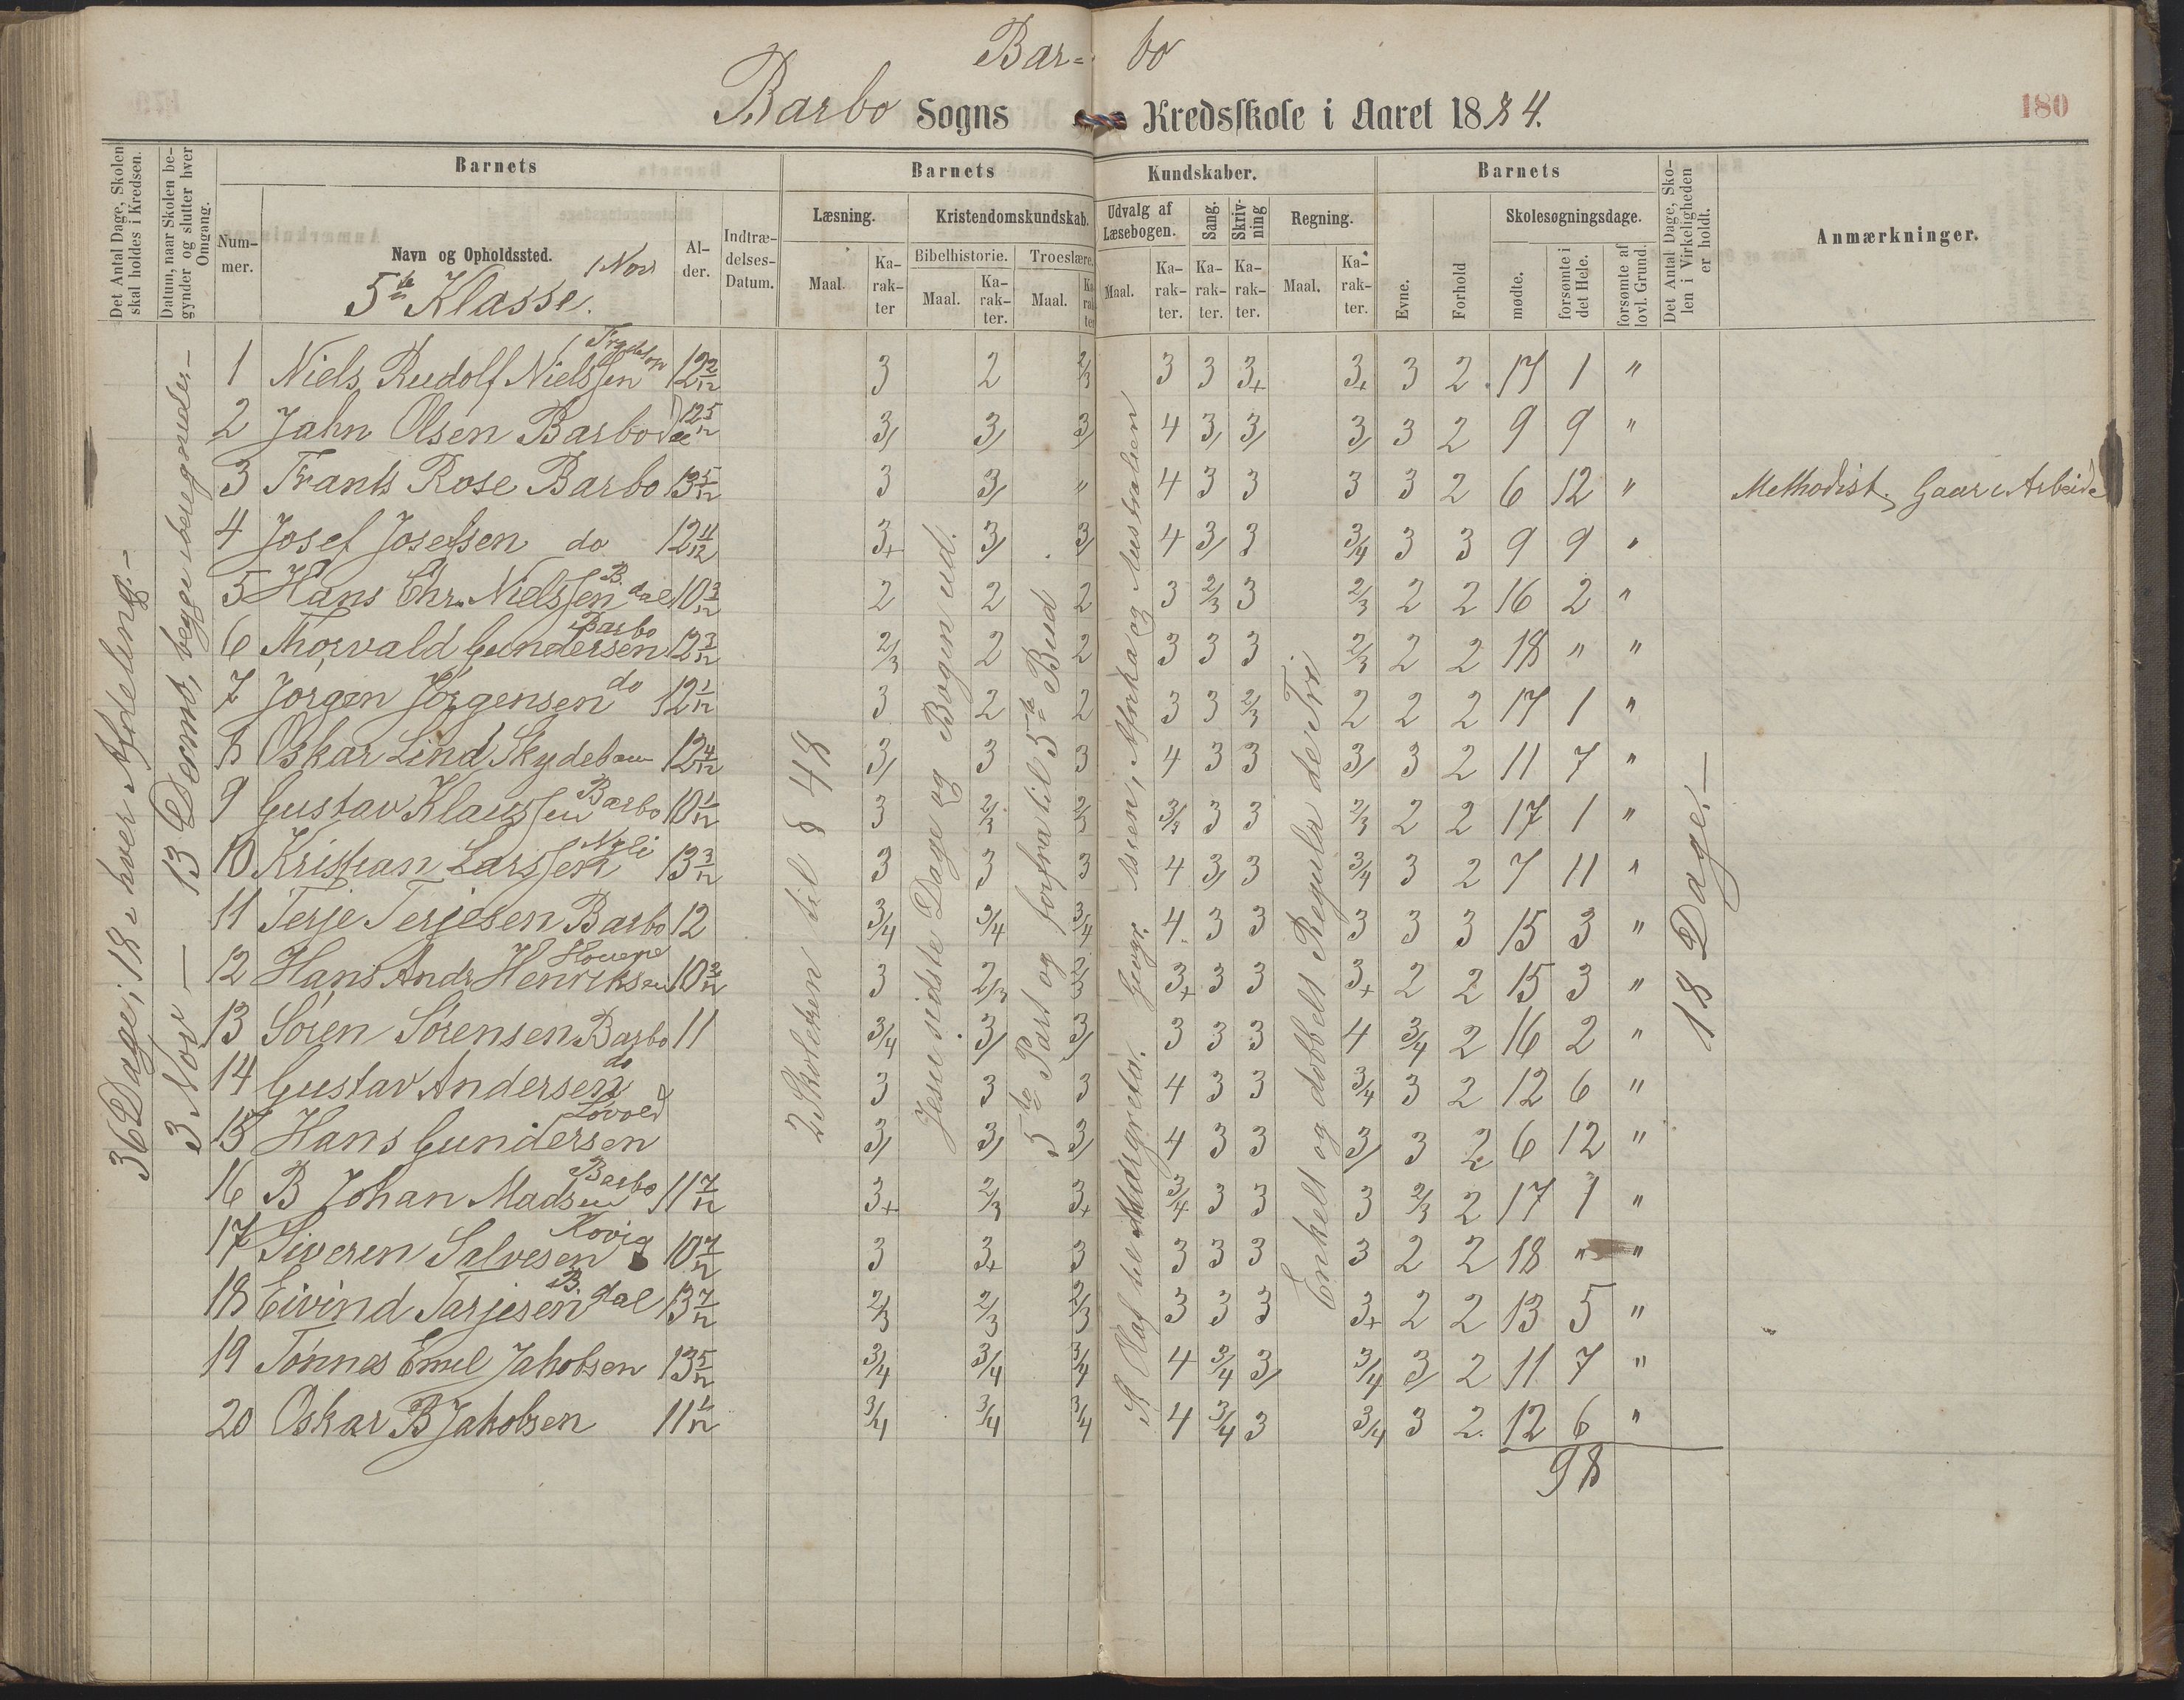 Bar= bo
Barbo Sogns Kredsskole i Aaret 1884.
180
Det Antal Dage, Skolen skal holdes i Kredsen.
Datum, naar Skolen begynder og slutter hver Omgang.
Barnets
Barnets Kundskaber.
Barnets
Det Antal Dage, Skolen i Virkeligheden er holdt.
Anmærkninger.
Nummer.
Navn og Opholdssted.
1 Nov
5te Klasse.
Alder.
Indtrædelses-Datum.
Læsning.
Kristendomskundskab.
Udvalg af Læsebogen.
Sang.
Skrivning
Regning.
Evne.
Forhold
Skolesøgningsdage.
Bibelhistorie.
Troeslære.
Maal.
Karakter
Maal.
Karakter.
Maal.
Karakter
Maal.
Karakter.
Karakter.
Karakter.
Maal.
Karakter.
mødte.
forsømte i det Hele.
forsømte af lovl. Grund.
36 Dage; 18 i hver Afdeling.—
3 Nov — 13 Decemb, begge iberegnede.—
2 Skoletrin til § 48
Jesu sidste Dage og Bogen ud.
5te Part og forfra til 5te Bud
St Olaf til Margreta. Geogr. Asien, Afrika og Australien
Enkelt og dobbelt Regula de Tri
18 Dage.—
1 Niels Rudolf Nielssen 12 2/12 3 2 2/3 3 3 3+ 3+ 3 2 17 1 "
2 Jahn Olsen Barbo 12 5/12 3/ 3/ 3/ 4 3/ 3/ 3/ 3 2 9 9 "
3 Frants Rose Barbo 13 5/12 3 3/ " 4 3 3 3 3 2 6 12 " Methodist. Gaar i Arbeide
4 Josef Josefsen do 12 11/12 3+ 3/ 3/ 4 3/ 3 3/4 3 3 9 9 "
5 Hans Chr. Nielssen B.dal 10 3/12 2 2 2 3 2/3 3 2/3 2 2 16 2 "
6 Thorvald Gundersen Barbo 12 3/12 2/3 2 2 3 3 3 2/3 2 2 18 " "
7 Jørgen Jørgensen do 12 1/12 3 2 2 3 3 2/3 2 2 2 17 1 "
8 Oskar Lind 12 4/12 3/ 3 3 4 3 3 3/ 3 2 11 7 "
9 Gustav Klaussen Barbo 10 1/12 3 2/3 2/3 3/3 3 3 2/3 2 2 17 1 "
10 Kristian Larssen 13 3/12 3 3 3 4 3/ 3 3/4 3 2 7 11 "
11 Terje Terjesen Barbo 12 3/4 3/4 3/4 4 3 3 3 3 3 15 3 "
12 Hans Andr Henriksen 3 2/3 3+ 3 3 3+ 2 2 15 3 "
13 Søren Sørensen Barbo 11 3/4 3/ 3/ 3 3 3 4 3/4 2 16 2 "
14 Gustav Andersen do 3 3 3 4 3 3 3/4 3 2 12 6 "
15 Hans Gundersen Løvold 3/ 3/ 3/ 4 3 3 3/ 3 2 6 12 "
16 B Johan Madsen Barbo 11 7/12 3+ 2/3 3+ 3/4 3 3 3 2/3 2 17 1 "
17 Siveren Salvesen 10 7/12 3 3+ 3 3 3 3 3 2 2 18 " "
18 Eivind Tarjesen B.dal 13 7/12 2/3 2/3 2/3 3 3 3 3+ 2 2 13 5 "
19 Tønnes Emil Jakobsen 13 5/12 3/4 3/4 3/4 4 3/4 3/ 3/4 3/ 2 11 7 "
20 Oskar B Jakobsen 11 1/12 3/4 3/4 3/4 4 3/4 3 3/4 3 2 12 6 "
98